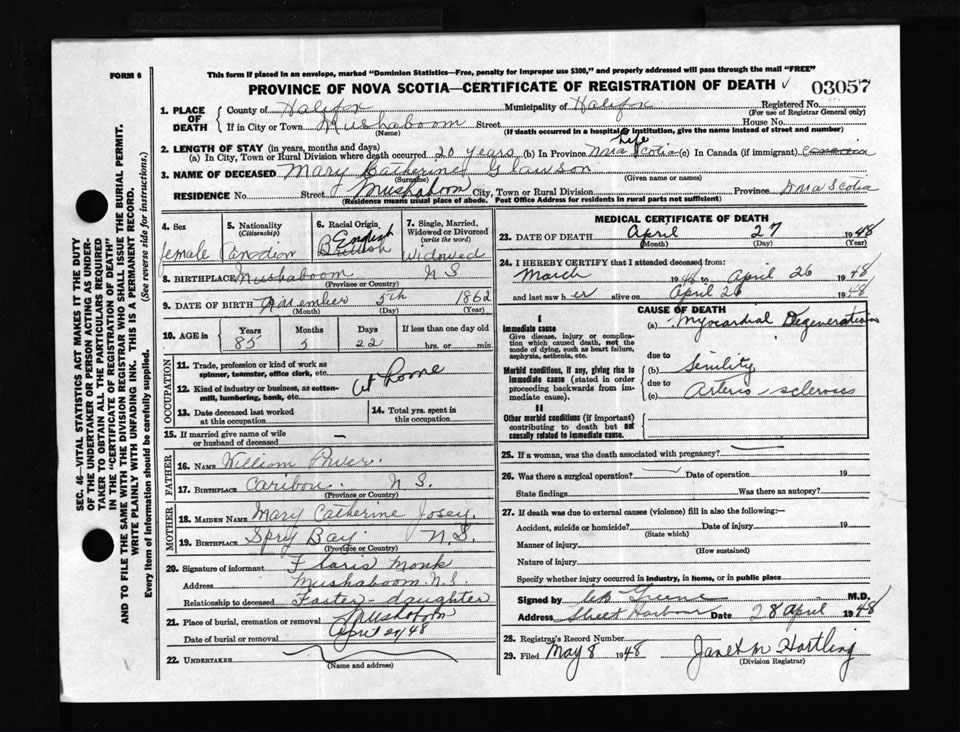 FORM 6
This form if placed in an envelope, marked "Dominion Statistics—Free, penalty for improper use $300," and properly addressed will pass through the mail "FREE"
PROVINCE OF NOVA SCOTIA—CERTIFICATE OF REGISTRATION OF DEATH 03057
1. PLACE OF DEATH
County of Halifax Municipality of Halifax Registered No.
(For use of Registrar General only)
If in City or Town Mushaboom Street House No.
(Name) (If death occurred in a hospital or institution, give the name instead of street and number)
2. LENGTH OF STAY (in years, months and days)
(a) In City, Town or Rural Division where death occurred 20 years (b) In Province Life Nova Scotia (c) In Canada (if immigrant)
3. NAME OF DECEASED Mary Catherine Glawson
(Surname) (Given name or names)
RESIDENCE No. Street Mushaboom City, Town or Rural Division Province Nova Scotia
(Residence means usual place of abode. Post Office Address for residents in rural parts not sufficient)
4. Sex
female
5. Nationality
(Citizenship)
Canadian
6. Racial Origin
English
British
7. Single, Married, Widowed or Divorced
(write the word)
Widowed
8. BIRTHPLACE Mushaboom N S
(Province or Country)
9. DATE OF BIRTH 5th 1862
(Month) (Day) (Year)
10. AGE in Years Months Days If less than one day old
85 5 22 hrs. or min.
OCCUPATION
11. Trade, profession or kind of work as spinner, teamster, office clerk, etc.
At Home
12. Kind of industry or business, as cotton-mill, lumbering, bank, etc.
13. Date deceased last worked at this occupation
14. Total yrs. spent in this occupation
15. If married give name of wife or husband of deceased —
FATHER
16. NAME William Power.
17. BIRTHPLACE Caribou N. S.
(Province or Country)
MOTHER
18. MAIDEN NAME Mary Catherine Josey.
19. BIRTHPLACE Spry Bay N. S.
(Province or Country)
20. Signature of informant Floris Monk
Address Mushaboom N.S.
Relationship to deceased Foster-daughter
21. Place of burial, cremation or removal Mushaboom
Date of burial or removal April 29/48
22. UNDERTAKER
(Name and address)
MEDICAL CERTIFICATE OF DEATH
23. DATE OF DEATH April 27 1948
(Month) (Day) (Year)
24. I HEREBY CERTIFY that I attended deceased from:
March 1948 to April 26 1948
and last saw her alive on April 26 1948
CAUSE OF DEATH
I
Immediate cause
Give disease, injury or complication which caused death, not the mode of dying, such as heart failure, asphyxia, asthenia, etc.
(a) Myocardial Degeneration
due to
Morbid conditions, if any, giving rise to immediate cause (stated in order proceeding backwards from immediate cause).
(b) Senility
due to
(c) Arterio-sclerosis
II
Other morbid conditions (if important) contributing to death but not causally related to immediate cause.
25. If a woman, was the death associated with pregnancy?
26. Was there a surgical operation? Date of operation 19
State findings Was there an autopsy?
27. If death was due to external causes (violence) fill in also the following:—
Accident, suicide or homicide? Date of injury 19
(State which)
Manner of injury
(How sustained)
Nature of injury
Specify whether injury occurred in industry, in home, or in public place
Signed by Greene M.D.
Address Sheet Harbour Date 28 April 1948
28. Registrar's Record Number
29. Filed May 8 1948 Janet M Hartling
(Division Registrar)
SEC. 46—VITAL STATISTICS ACT MAKES IT THE DUTY
OF THE UNDERTAKER OR PERSON ACTING AS UNDER-
TAKER TO OBTAIN ALL THE PARTICULARS REQUIRED
IN THE "CERTIFICATE OF REGISTRATION OF DEATH"
AND TO FILE THE SAME WITH THE DIVISION REGISTRAR WHO SHALL ISSUE THE BURIAL PERMIT.
WRITE PLAINLY WITH UNFADING INK. THIS IS A PERMANENT RECORD.
Every item of information should be carefully supplied. (See reverse side for instructions.)